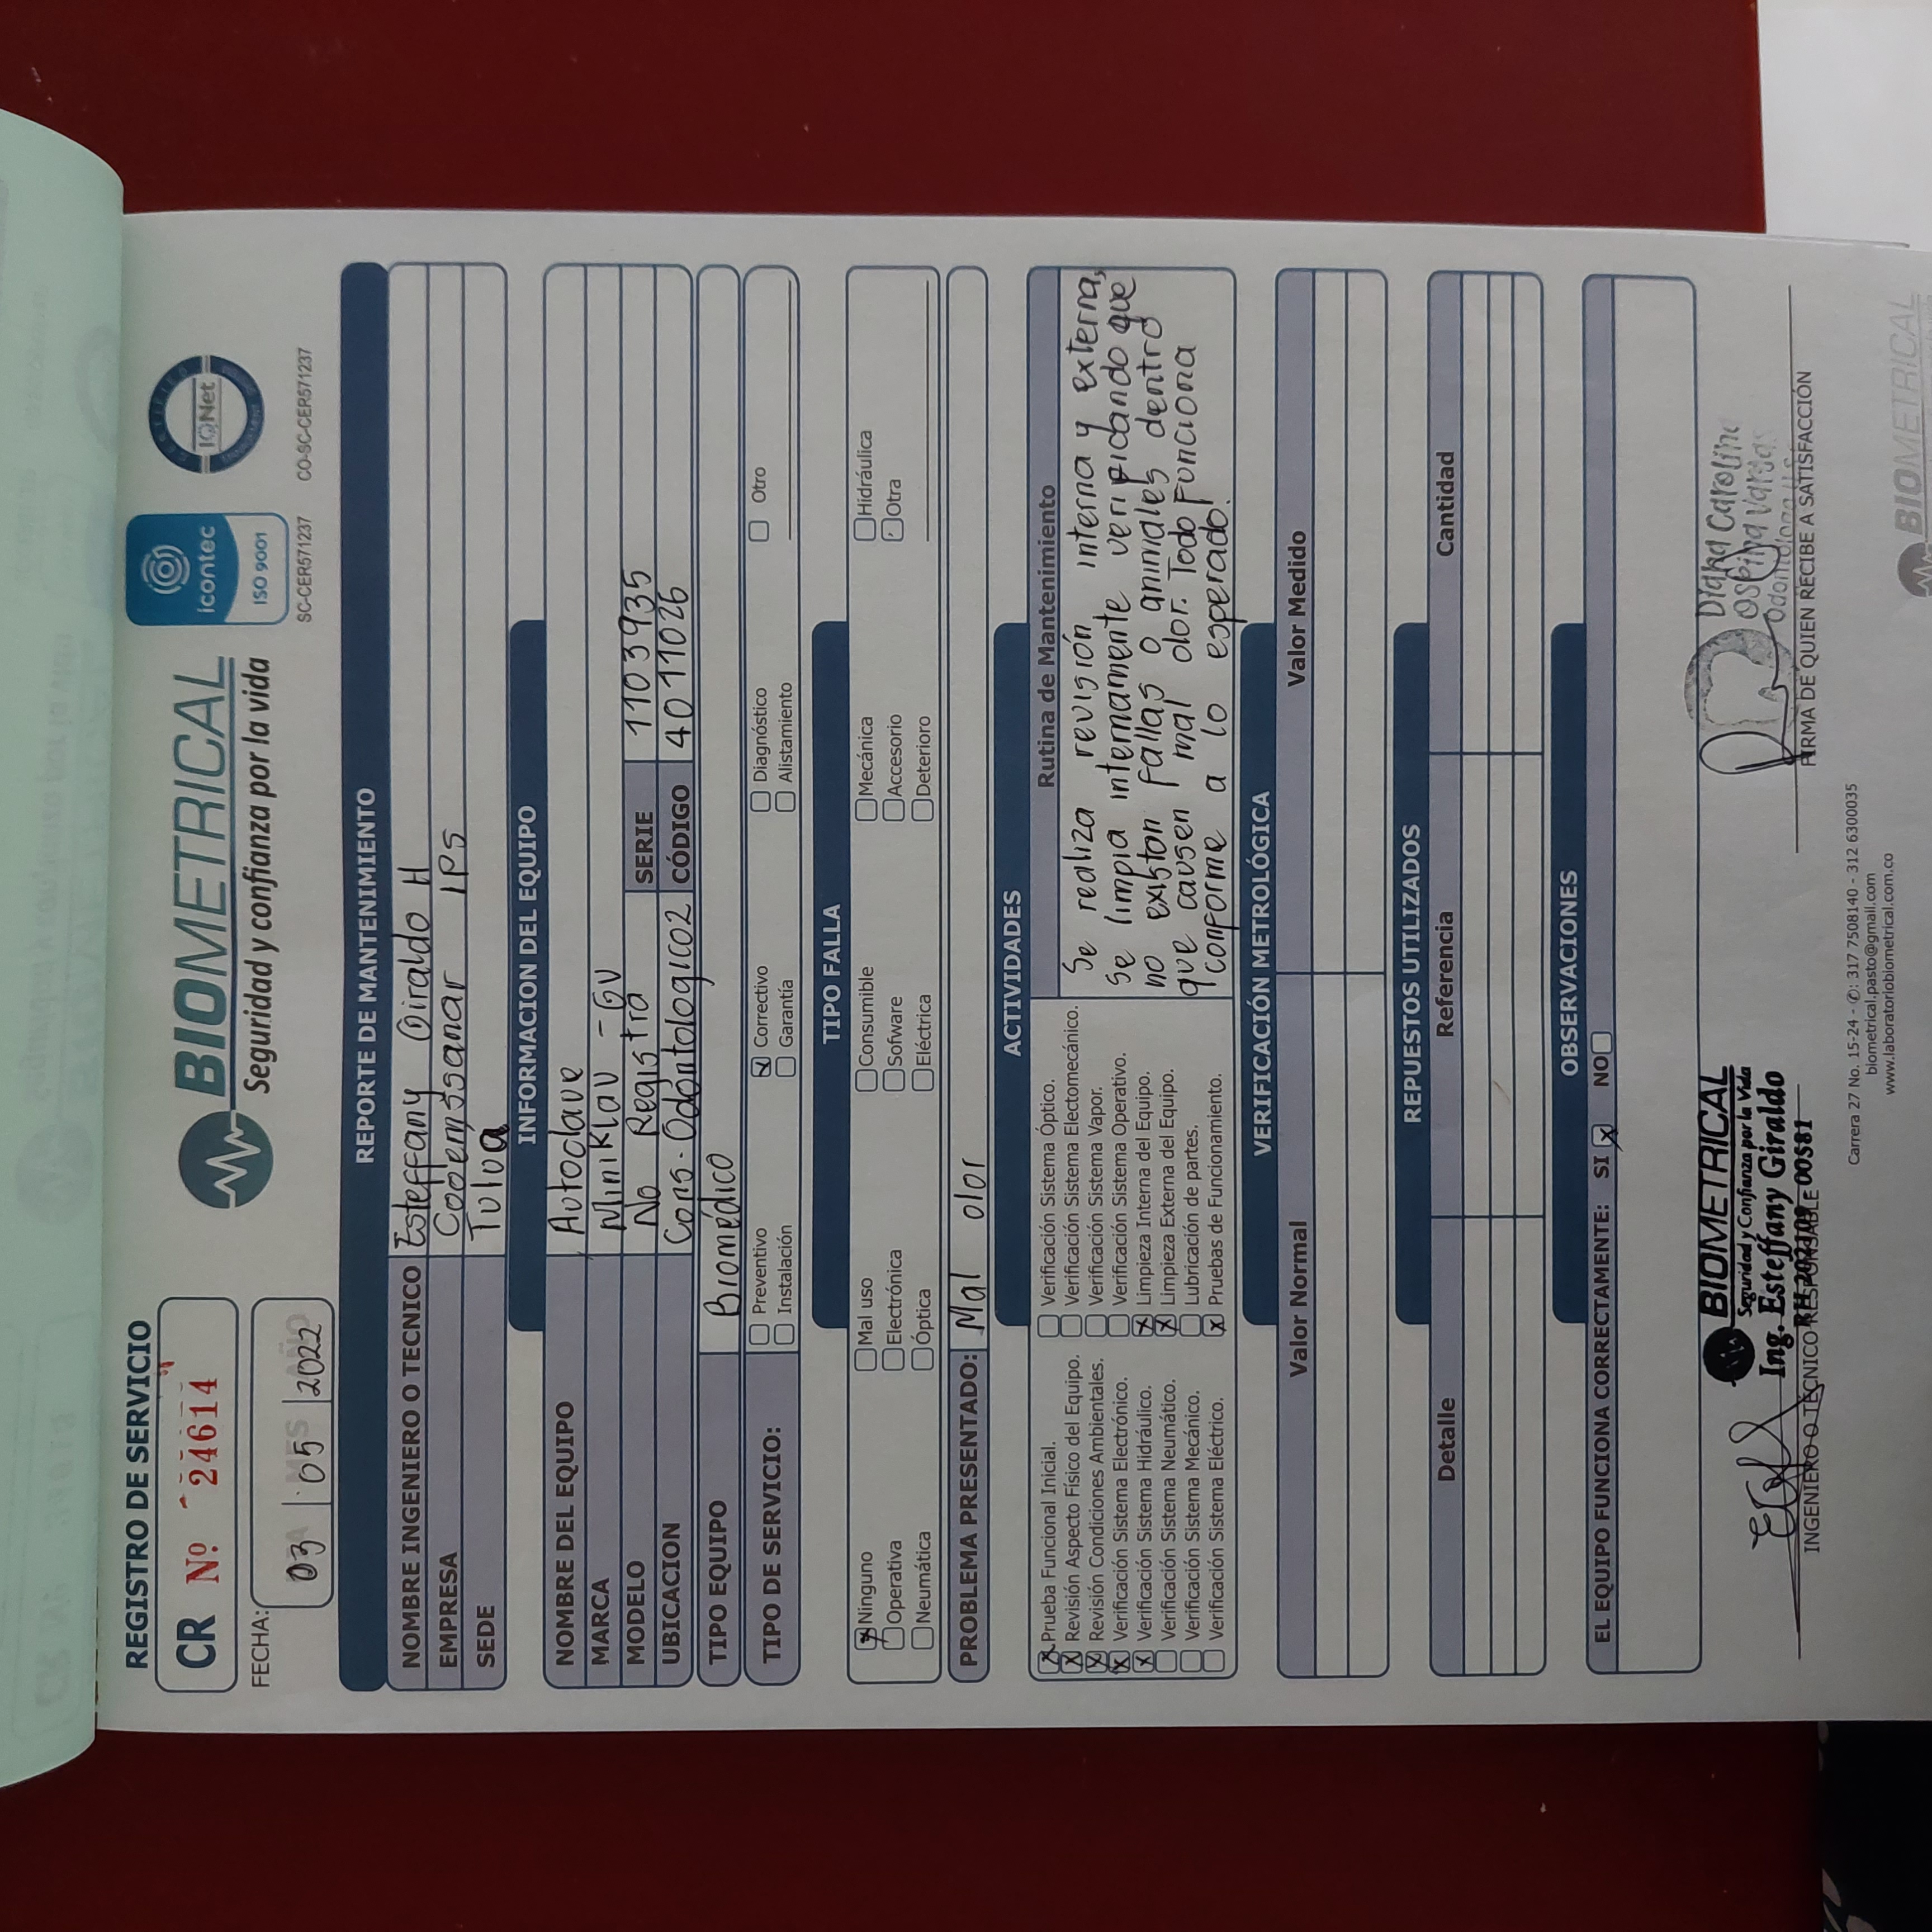 REGISTRO DE SERVICIO
CR Nº 24614
FECHA: 03 05 2022
BIOMETRICAL
Seguridad y confianza por la vida
icontec
ISO 9001
SC-CER571237
IQNet
CO-SC-CER571237
REPORTE DE MANTENIMIENTO
NOMBRE INGENIERO O TECNICO Esteffany Giraldo H
EMPRESA Cooemssanar IPS
SEDE Tulua
INFORMACION DEL EQUIPO
NOMBRE DEL EQUIPO Autoclave
MARCA Miniklav - GV
MODELO No Registra SERIE 1103935
UBICACION Cons. Odontologico 2 CÓDIGO 4011026
TIPO EQUIPO Biomédico
TIPO DE SERVICIO:
Preventivo Correctivo Diagnóstico Otro
Instalación Garantía Alistamiento
TIPO FALLA
Ninguno Mal uso Consumible Mecánica Hidráulica
Operativa Electrónica Sofware Accesorio Otra
Neumática Óptica Eléctrica Deterioro
PROBLEMA PRESENTADO: Mal olor
ACTIVIDADES
Prueba Funcional Inicial.
Revisión Aspecto Físico del Equipo.
Revisión Condiciones Ambientales.
Verificación Sistema Electrónico.
Verificación Sistema Hidráulico.
Verificación Sistema Neumático.
Verificación Sistema Mecánico.
Verificación Sistema Eléctrico.
Verificación Sistema Óptico.
Verificación Sistema Electomecánico.
Verificación Sistema Vapor.
Verificación Sistema Operativo.
Limpieza Interna del Equipo.
Limpieza Externa del Equipo.
Lubricación de partes.
Pruebas de Funcionamiento.
Rutina de Mantenimiento
Se realiza revisión interna y externa,
se limpia internamente verificando que
no existan fallas o animales dentro
que causen mal olor. Todo funciona
conforme a lo esperado!
VERIFICACIÓN METROLÓGICA
Valor Normal Valor Medido
REPUESTOS UTILIZADOS
Detalle Referencia Cantidad
OBSERVACIONES
EL EQUIPO FUNCIONA CORRECTAMENTE: SI NO
BIOMETRICAL
Seguridad y Confianza por la Vida
Ing. Esteffany Giraldo
RH 202109 - 00581
INGENIERO O TÉCNICO RESPONSABLE
Diana Carolina
Ospina Vargas
FIRMA DE QUIEN RECIBE A SATISFACCIÓN
Carrera 27 No. 15-24 - ✆: 317 7508140 - 312 6300035
biometrical.pasto@gmail.com
www.laboratoriobiometrical.com.co
BIOMETRICAL